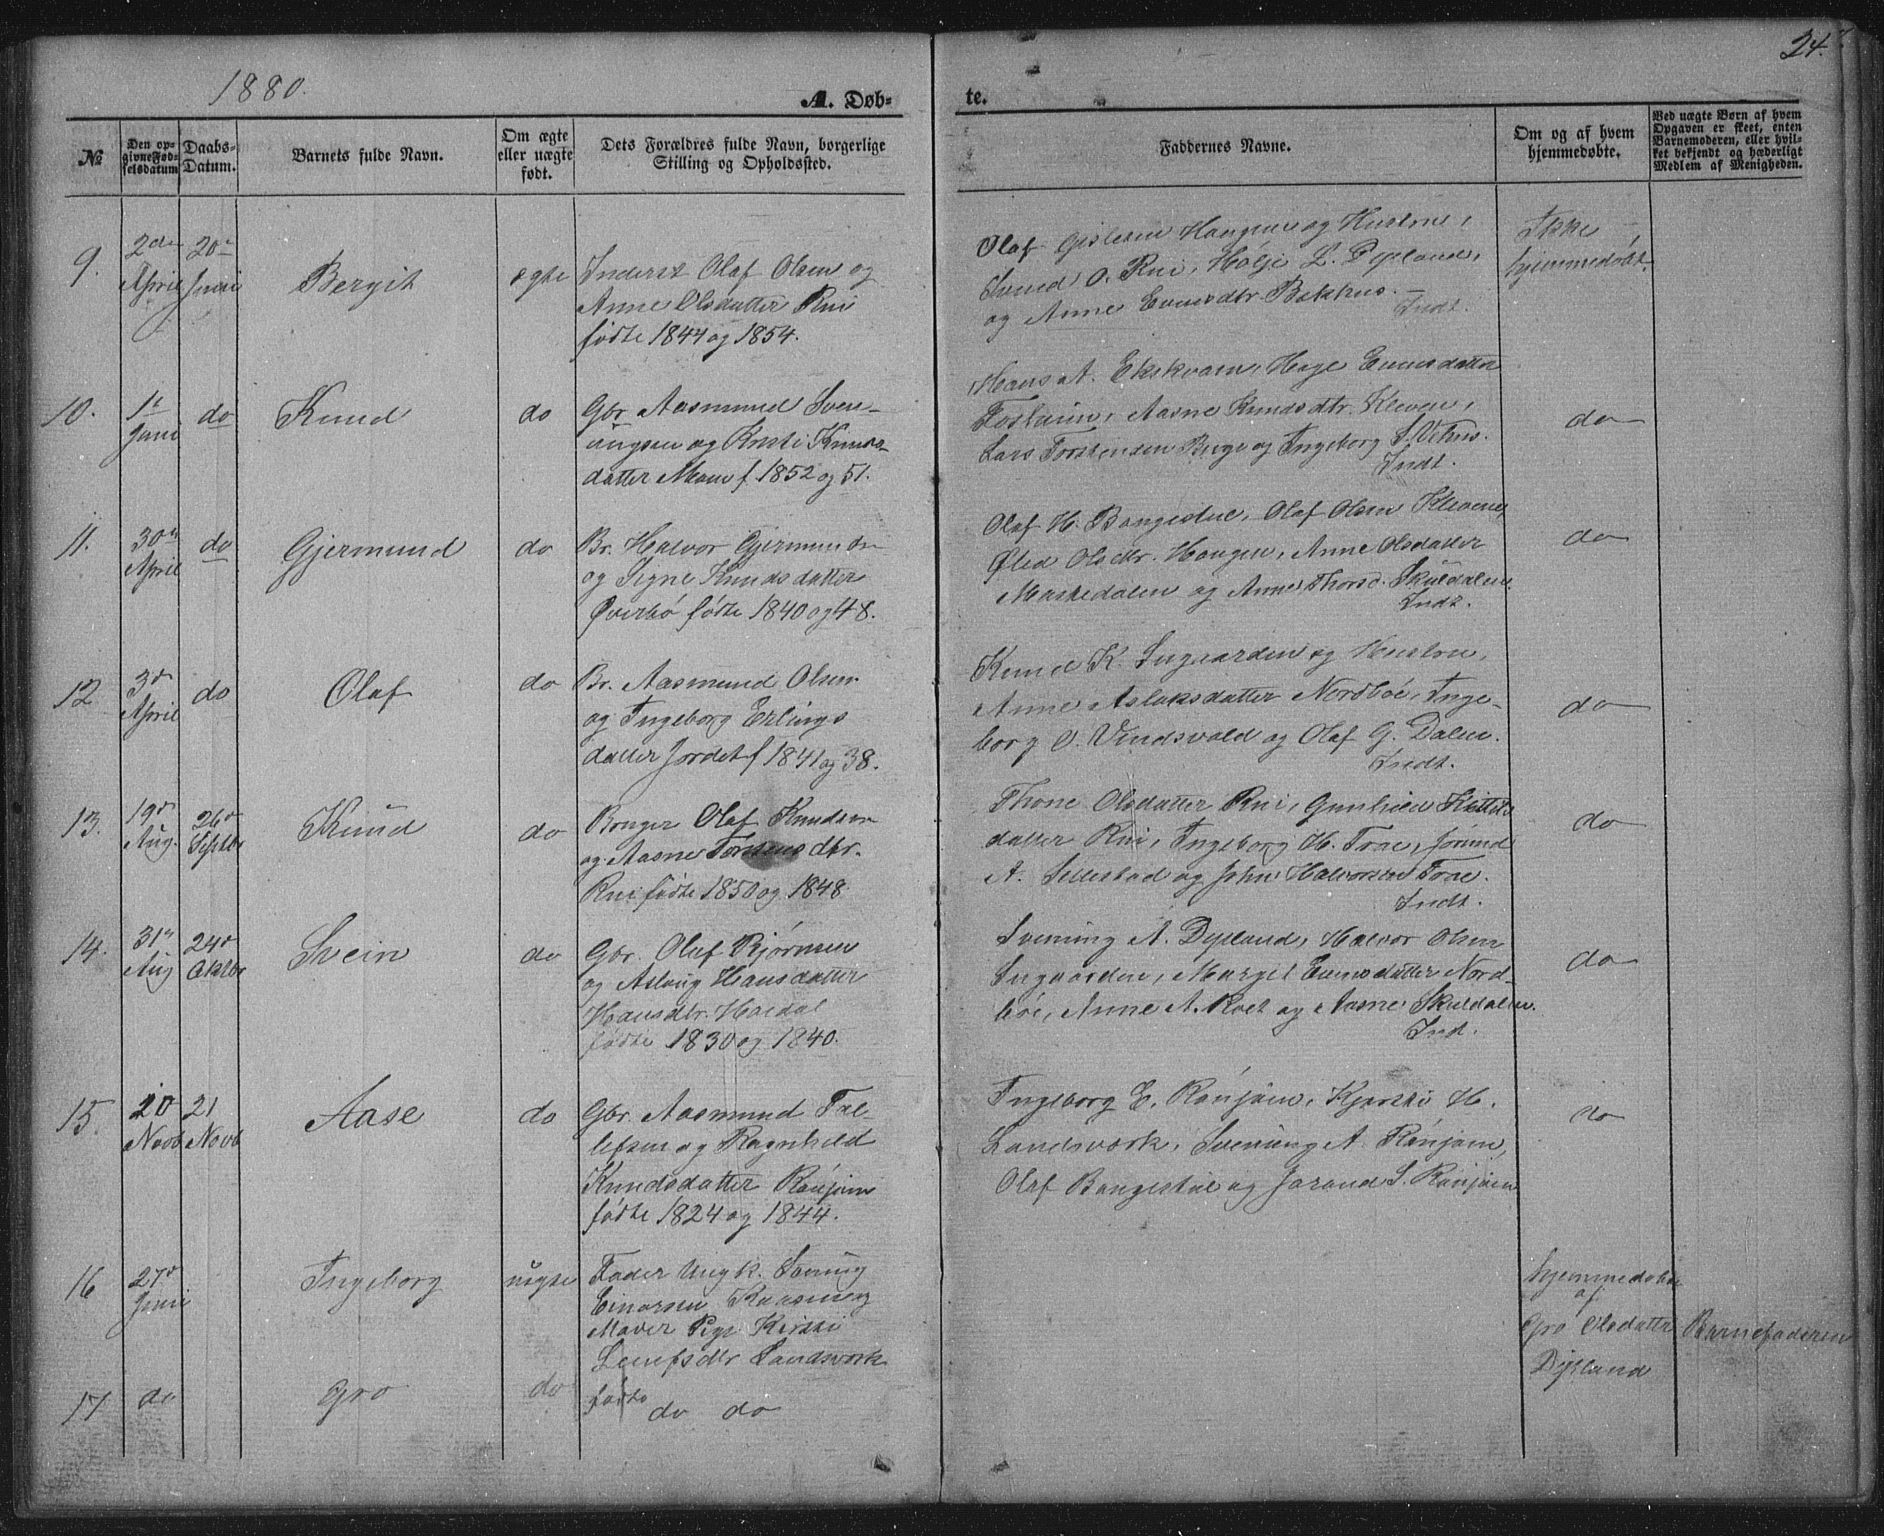 1880.
A. Døb-
te.
24.
№
Den op-
givne Fød-
selsdatum
Daabs-
Datum.
Barnets fulde Navn.
Om ægte
eller uægte
født.
Dets Forældres fulde Navn, borgerlige
Stilling og Opholdssted.
Faddernes Navne.
Om og af hvem
hjemmedøbte.
Ved uægte Børn af hvem
Opgaven er skeet, enten
Barnemoderen, eller hvil-
ket bekjendt og hæderligt
Medlem af Menigheden.
9.
2den
April
20de
Juni
Bergit
ægte
Inderst Olaf Olsen og
Anne Olsdatter Rui
fødte 1844 og 1854.
Olaf Gislesen Haugen og Hustru,
Svend O. Rui, Hølje L. Dyrland,
og Anne Evensdtr. Bakhus.
Indt.
Ikke
hjemmedøbt.
10.
1ste
Juni
do
Knud
do
Gbr Aasmund Sven-
ungsen og Kirsti Knuds-
datter Moen f. 1852 og 51.
Hans A. Ekskvarn, Hæge Evensdatter
Aasne Knudsdtr. Kleven,
Lars Torstensen Buge og Ingeborg S. Vehus.
Indt.
do
11.
30te
April
do
Gjermund
do
Br. Halvor Gjermunds.
og Signe Knudsdatter
Øverbø fødte 1840 og 48.
Olaf H. Bangestul, Olaf Olsen Kleven,
Olsdtr. Haugen, Anne Olsdatter
Maskedalen og Anne Thorsd. Skuldalen.
Indt.
do
12
3de
April
do
Olaf
do
Br. Aasmund Olsen
og Ingeborg Erlings
datter Jordet f 1841 og 38.
Knud K. Suguarden og Hustru,
Anne Aslaksdatter Nordbøe, Inge-
borg O. Vindsvald og Olaf G. Dalen.
Indt.
do
13.
19de
Aug.
26de
Septbr
Knud
do
Bruger Olaf Knudsen
og Aasne Torstensdtr.
Rui fødte 1850 og 1848.
Thone Olsdatter Rui, Gunhild Kittils
datter Rui, Ingeborg H. Trae, Jørund
A. Sellestad og John Halvorsen Trae.
Indt.
do
14.
31te
Aug
24de
Oktbr
Svein
do
Gbr. Olaf Bjørnsen
og Aslaug Hansdatter
Hansdtr. Hæidal
fødte 1830 og 1840.
Svenung A. Dyrland, Halvor Olsen
Suguarden, Margit Evensdatter Nord-
bøe, Anne A. Roet og Aasne Skuldalen.
Indt.
do
15.
20
Novb
21
Novb
Aase
do
Gbr. Aasmund Tal-
lefsen og Ragnhild
Knudsdatter Rønjom
fødte 1824 og 1844.
Ingeborg E. Rønjom, Kjersti H.
Landsværk, Svenung A. Rønjom,
Olaf Bangestul og Jorand S. Rønjom
do
16
27de
Juni
Ingeborg
uægte
Fader Ungk. Svenung
Einarsen
Moder Pige Kirsti
Leivfsdtr Landsværk
fødte
hjemmedøbt
af
Gro Olsdatter
Dyrland
Barnefaderen
17
do
Gro
do
do do